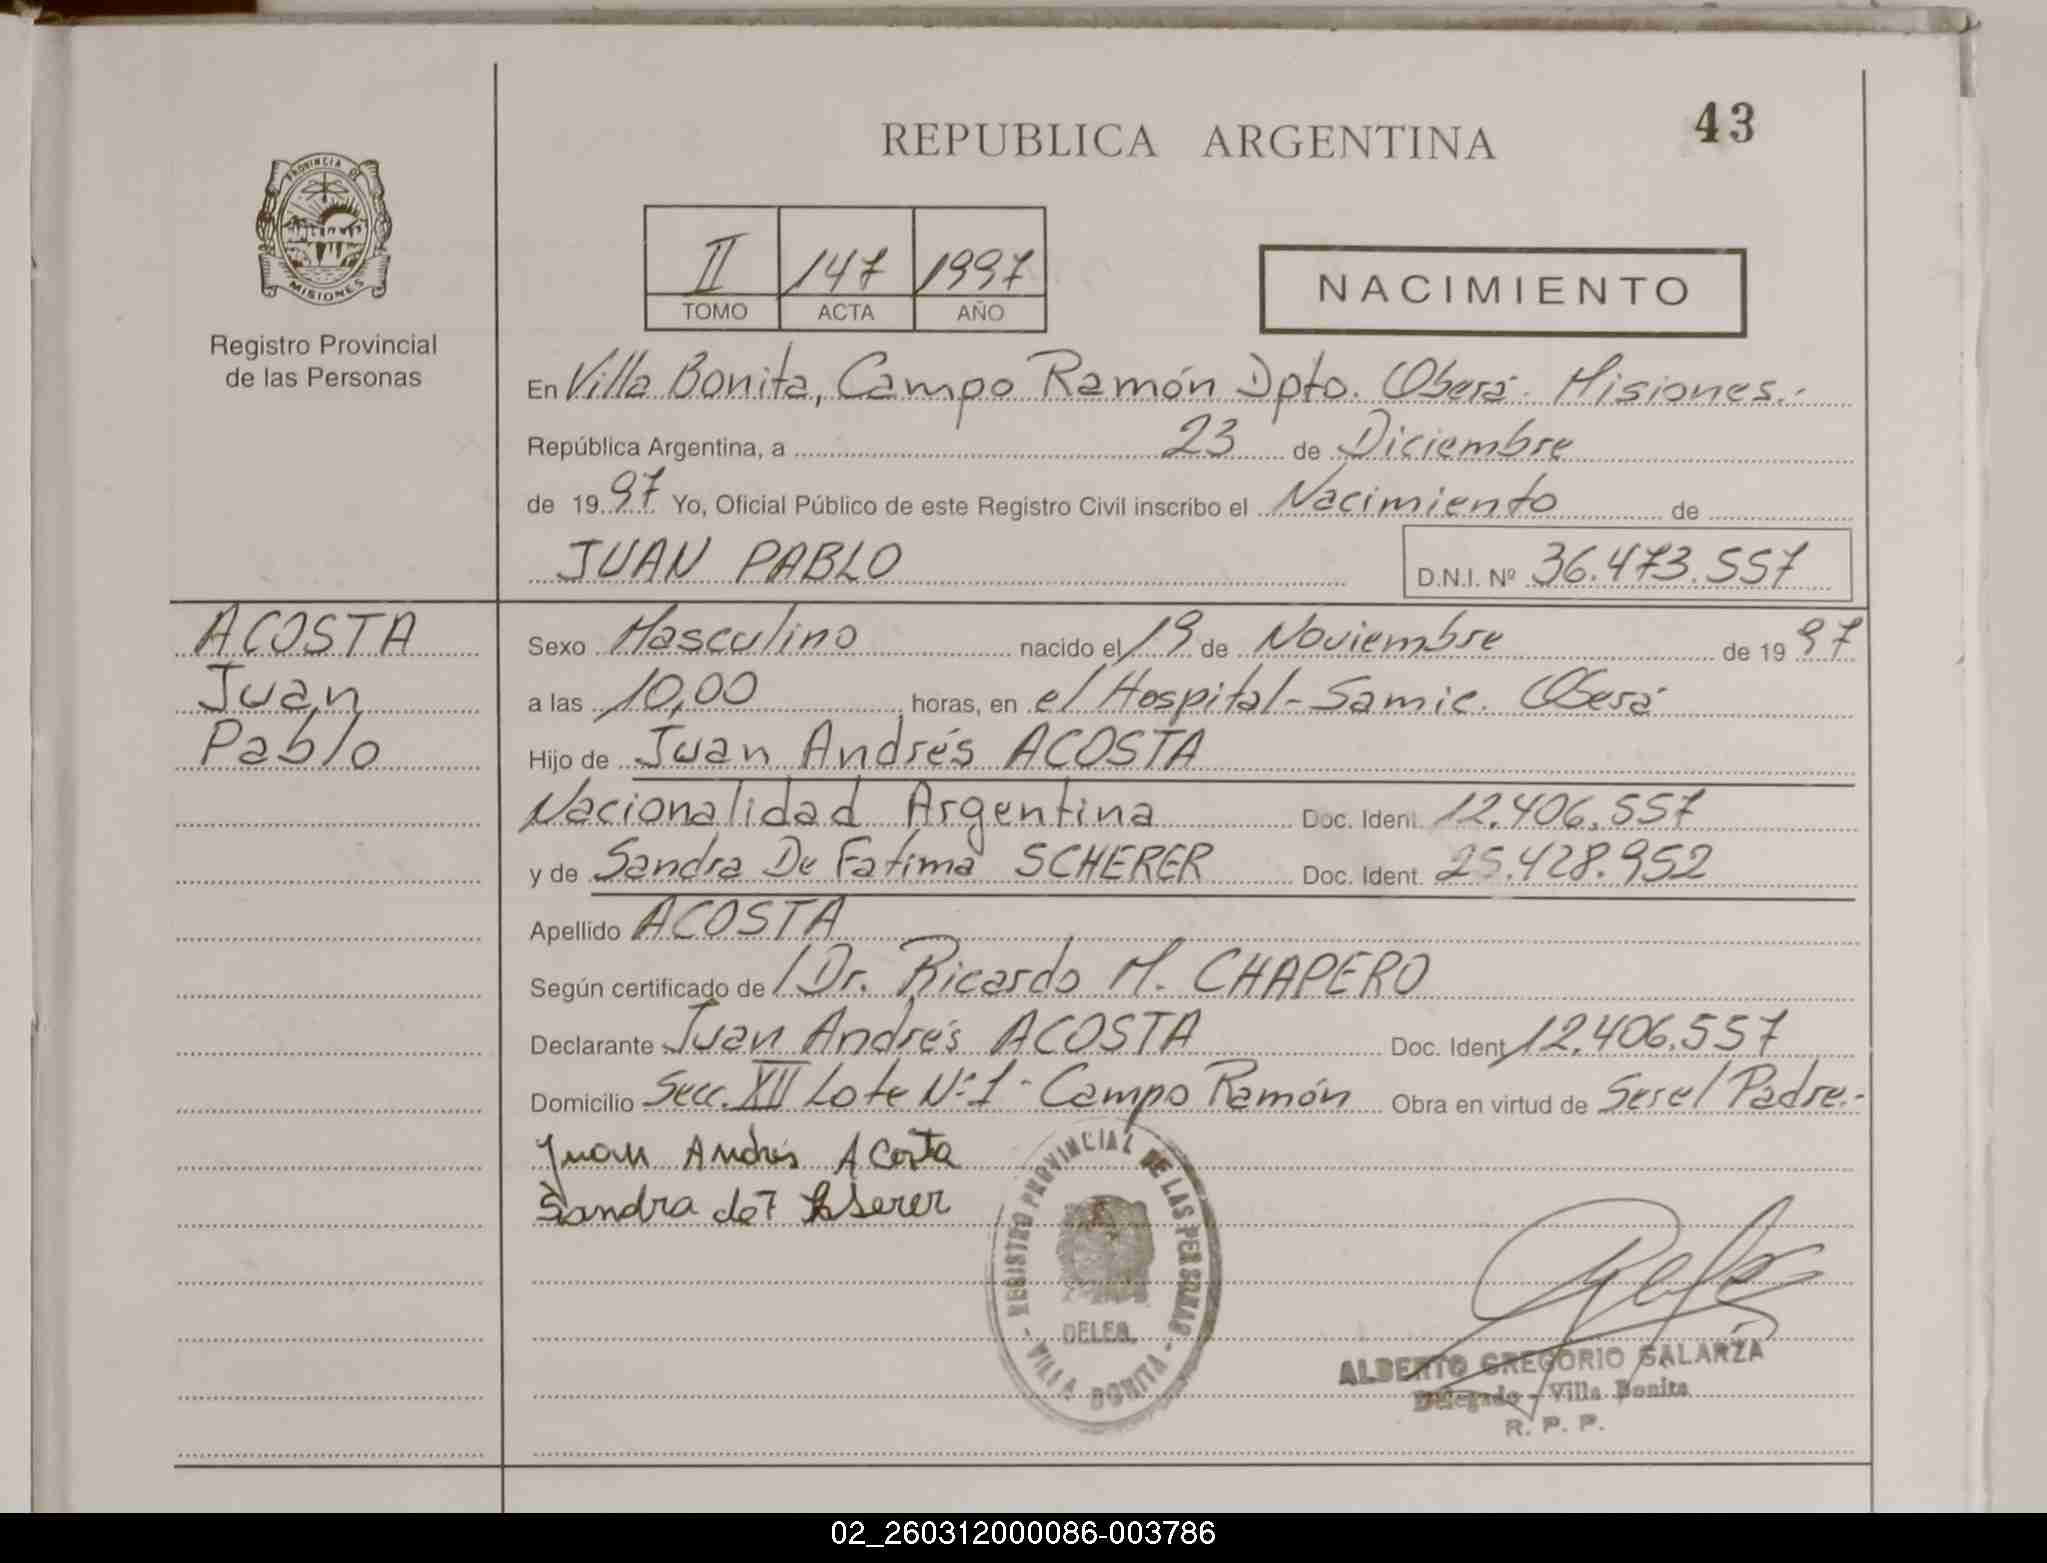 REPUBLICA ARGENTINA
43
PROVINCIA DE
MISIONES
Registro Provincial
de las Personas
II 147 1997
TOMO ACTA AÑO
NACIMIENTO
En Villa Bonita, Campo Ramón Dpto. Oberá - Misiones.-
República Argentina, a 23 de Diciembre
de 1997 Yo, Oficial Público de este Registro Civil inscribo el Nacimiento de
JUAN PABLO D.N.I. Nº 36.473.557
ACOSTA
Juan
Pablo
Sexo Masculino nacido el 19 de Noviembre de 1997
a las 10,00 horas, en el Hospital-Samic. Oberá
Hijo de Juan Andrés ACOSTA
Nacionalidad Argentina Doc. Ident. 12.406.557
y de Sandra De Fatima SCHERER Doc. Ident. 25.428.952
Apellido ACOSTA
Según certificado de Dr. Ricardo M. CHAPERO
Declarante Juan Andrés ACOSTA Doc. Ident 12.406.557
Domicilio Secc. XII Lote Nº 1 - Campo Ramón Obra en virtud de Ser el Padre.-
Juan Andrés Acosta
Sandra de F
REGISTRO PROVINCIAL DE LAS PERSONAS
DELEG.
- VILLA BONITA -
ALBERTO GREGORIO GALARZA
Delegado - Villa Bonita
R. P. P.
02_260312000086-003786